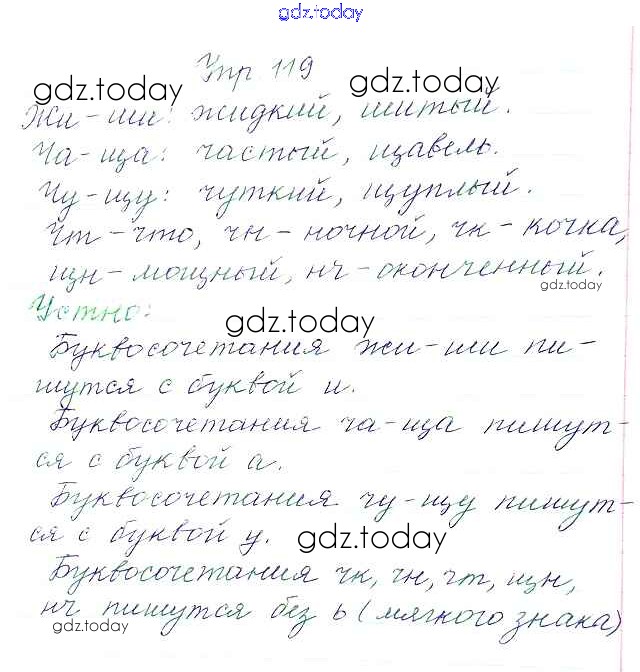 gdz.today
Упр. 119
gdz.today gdz.today
Жи-ши: жидкий, шитый.
Ча-ща: частый, щавель.
Чу-щу: чуткий, щуплый.
Чт-что, чн-ночной, чк-кочка,
щн-мощный, нч-оконченный.
gdz.today
Устно:
gdz.today
Буквосочетания жи-ши пи-
шутся с буквой и.
Буквосочетания ча-ща пишут-
ся с буквой а.
Буквосочетания чу-щу пишут-
ся с буквой у.
gdz.today
Буквосочетания чк, чн, чт, щн,
нч пишутся без ь (мягкого знака)
gdz.today
gdz.today